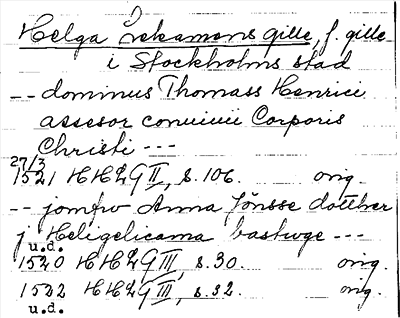 Helga Lekamens gille, f. gille
i Stockholms stad
-- dominus Thomass Henrici
assesor conuiuii Corporis
Christi ---
27/3
1521 HHLG II, s. 106. orig.
-- jomfrv Anna Jönsse dotther
j Heligelicama bastwge ---
u.d.
1520 HHLG III, s. 30. orig.
1522 HHLG III, s. 32. orig.
u.d.